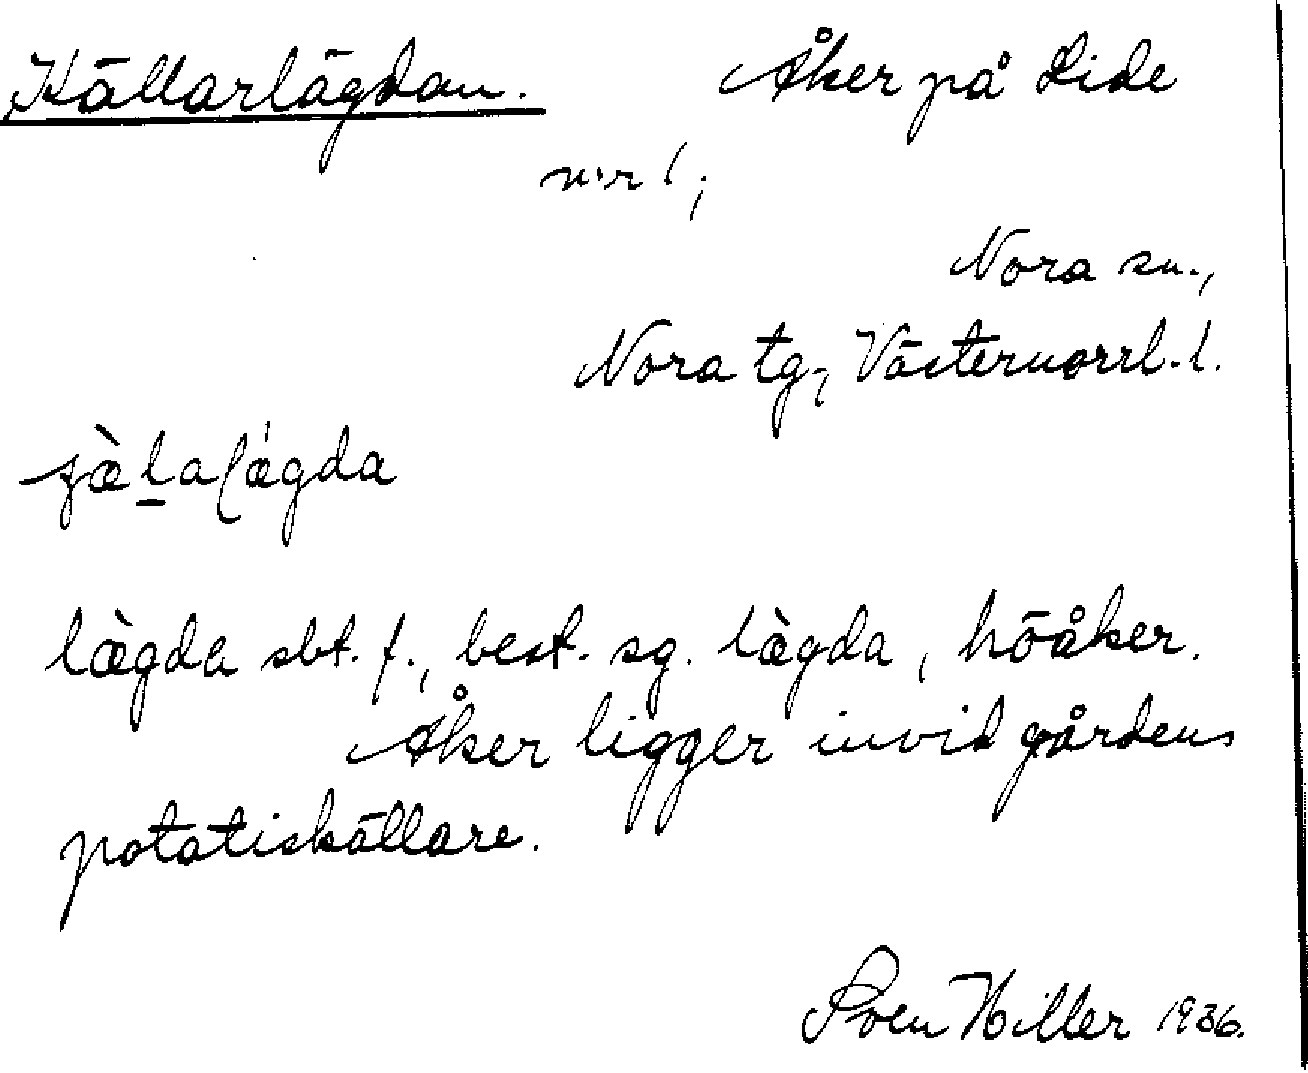 Källarlägdan. Åker på Lide
nr 1;
Nora sn.,
Nora tg, Västernorrl. l.
lægda sbt. f., best. sg. lægda, höåker.
Åker ligger invid gårdens
potatiskällare.
Sven Hiller 1936.